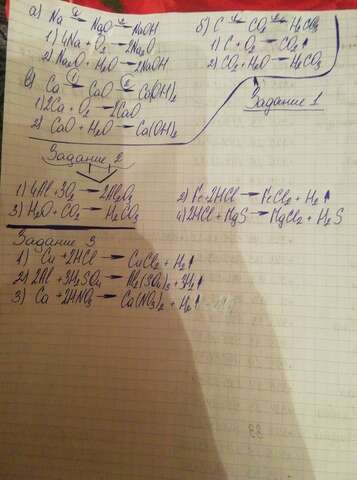 а) Na → Na₂O → NaOH
1) 4Na + O₂ → 2Na₂O
2) Na₂O + H₂O → 2NaOH
б) C → CO₂ → H₂CO₃
1) C + O₂ → CO₂↑
2) CO₂ + H₂O → H₂CO₃
в) Ca → CaO → Ca(OH)₂
1) 2Ca + O₂ → 2CaO
2) CaO + H₂O → Ca(OH)₂
Задание 1
Задание 2
1) 4Al + 3O₂ → 2Al₂O₃
2) Fe + 2HCl → FeCl₂ + H₂↑
3) H₂O + CO₂ → H₂CO₃
4) 2HCl + MgS → MgCl₂ + H₂S
Задание 3
1) Cu + 2HCl → CuCl₂ + H₂↑
2) 2Al + 3H₂SO₄ → Al₂(SO₄)₃ + 3H₂↑
3) Ca + 2HNO₃ → Ca(NO₃)₂ + H₂↑